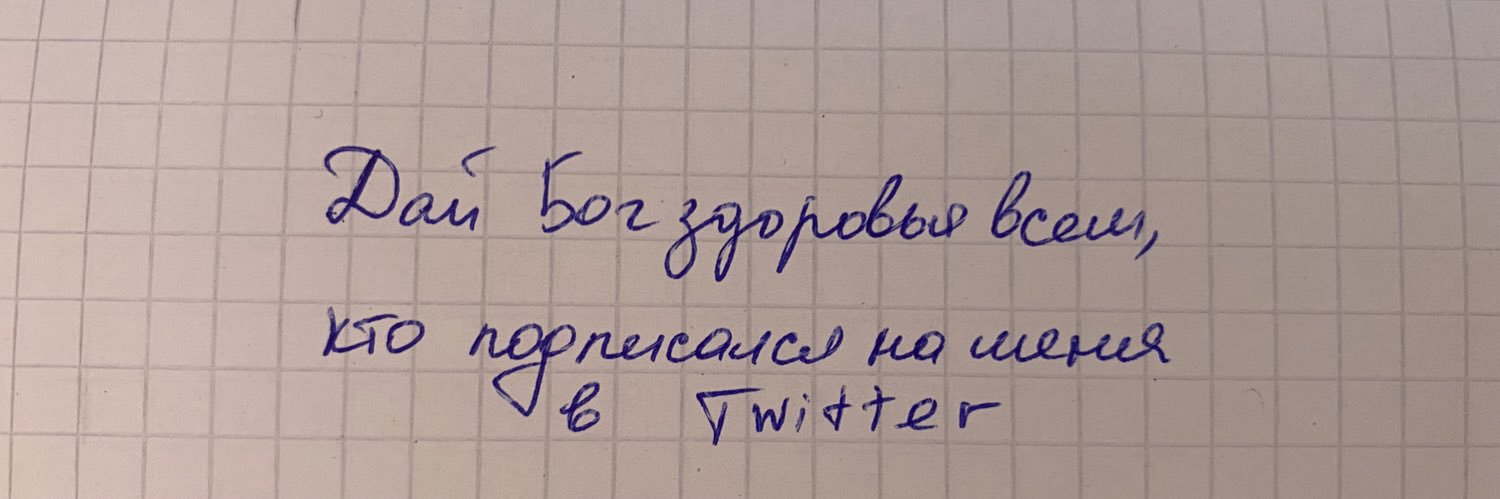 Дай Бог здоровья всем,
кто подписался на меня
в Twitter